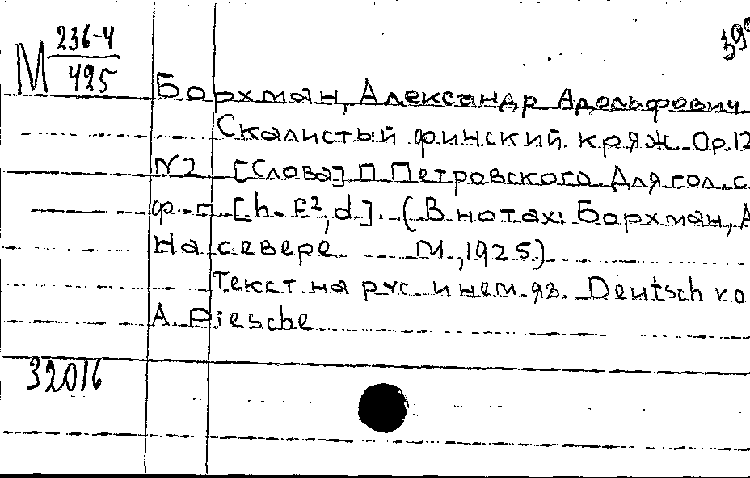 М 236-4
425
39
Бархман, Александр Адольфович
Скалистый финский кряж. Ор.12
N2 [Слова] П Петровского Для гол. с
ф-п [h-E², d]. (В нотах: Бархман, А
На севере М., 1925)
Текст на рус. и нем. яз. Deutsch vo
A. Piesche
32016